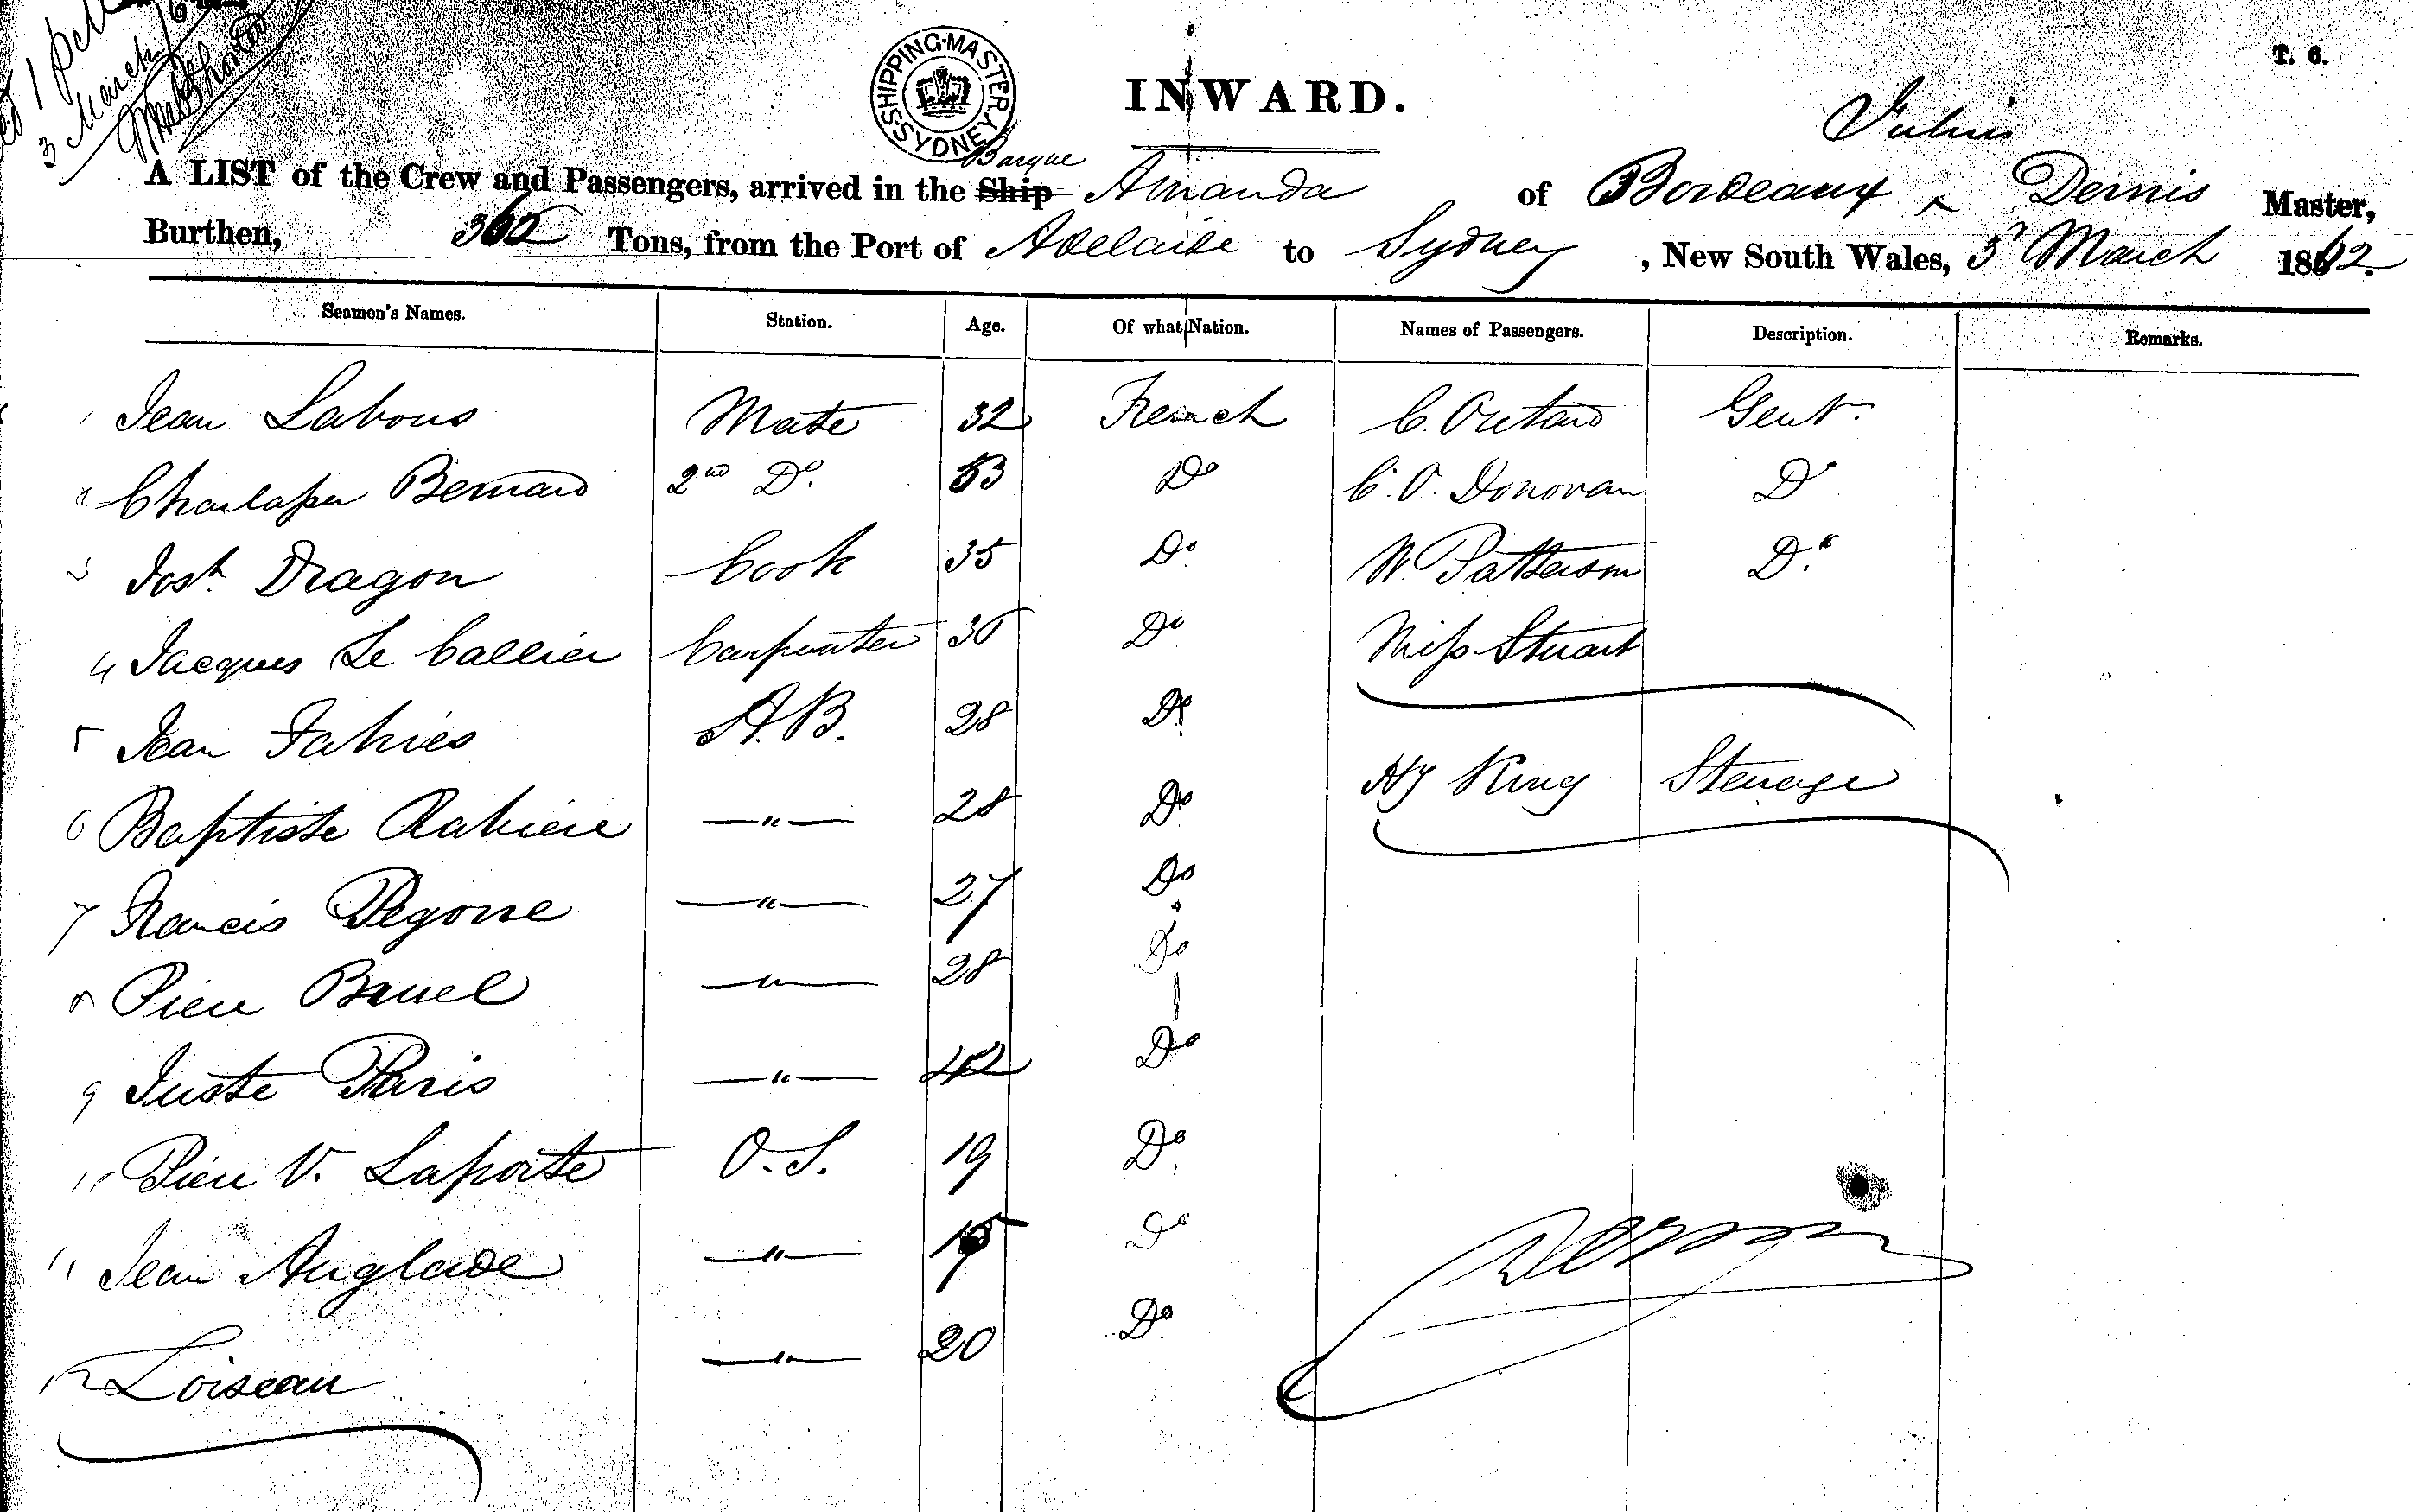 3 March
SHIPPING MASTER SYDNEY
INWARD.
T. 6.
Julius
Barque
A LIST of the Crew and Passengers, arrived in the Ship Amanda of Bordeaux ^ Dernis Master,
Burthen, 360 Tons, from the Port of Adelaide to Sydney, New South Wales, 3r March 1862.
Seamen's Names. Station. Age. Of what Nation. Names of Passengers. Description. Remarks.
1 Jean Labous Mate 32 French C. Outard Gent.
2 Bernard 2nd Do. 53 Do C. O. Donovan Do
3 Josh. Dragon Cook 35 Do. W. Patterson Do.
4 Jacques Le Callier Carpenter 36 Do Miss Stuart
5 Jean Fahies A.B. 28 Do
Hy King Steerage
6 Baptiste Rabiere —"— 28 Do
7 Francis Degorre —"— 27 Do
8 Pierre Bruel —"— 28 Do
9 Juste Paris —"— 42 Do
11 Pierre V. Laporte O.S. 19 Do.
11 Jean Anglade —"— Do
12 Loiseau —"— 20 Do